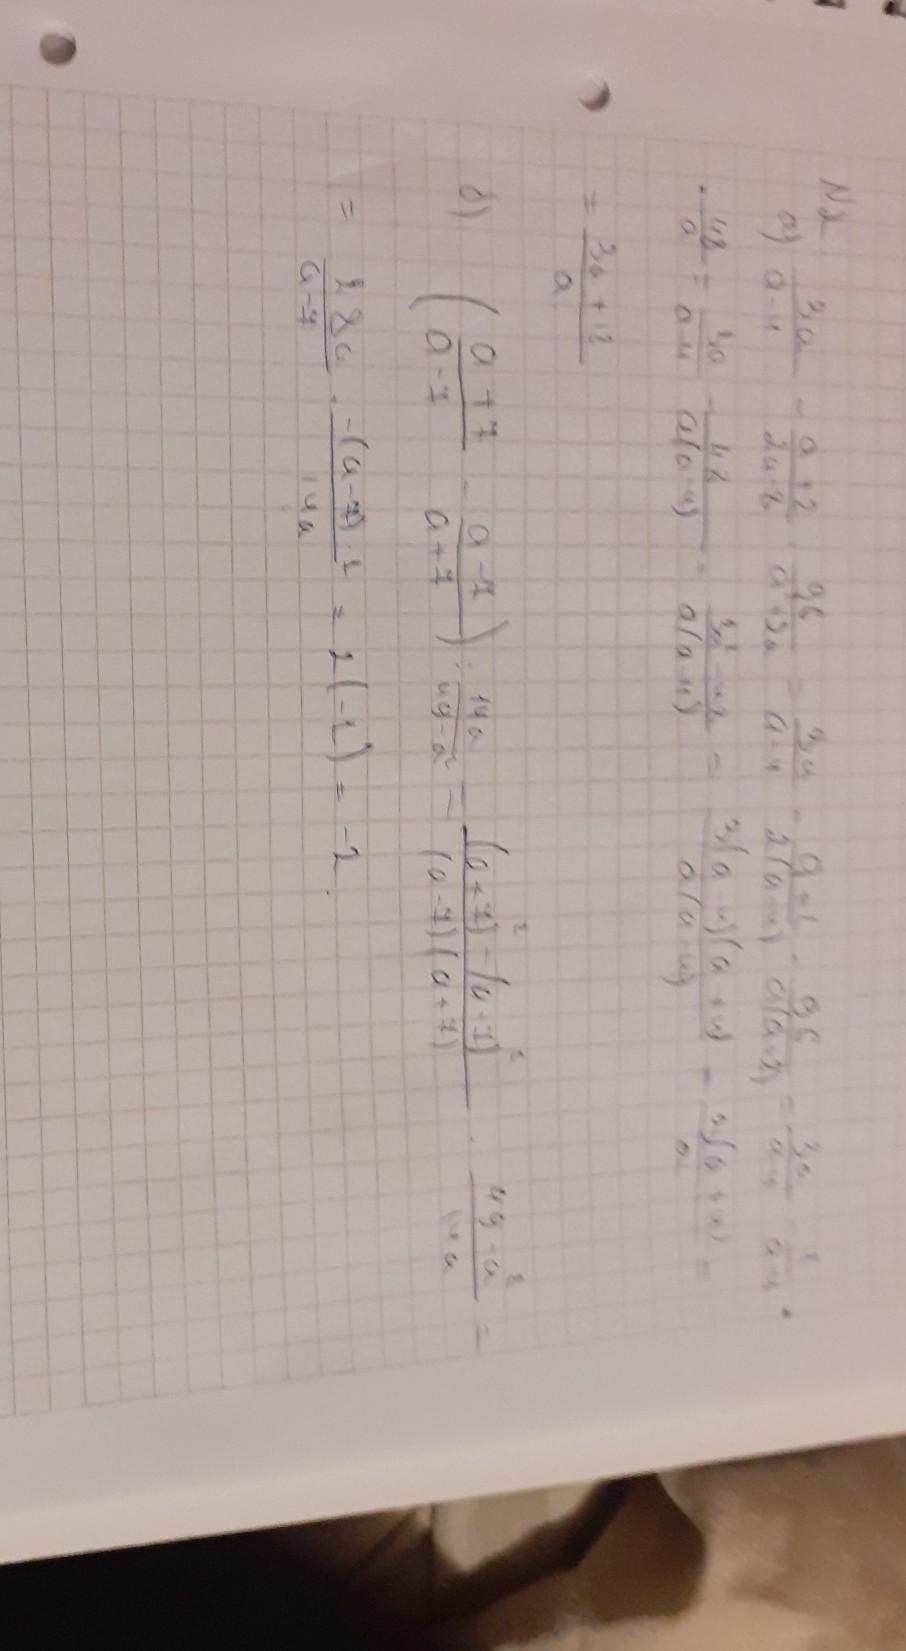 N2
а) 3a/(a-4) - (a+2)/(2a-8) · 96/(a²+2a) = 3a/(a-4) - (a+2)/(2(a-4)) · 96/(a(a+2)) = 3a/(a-4) - 1/(a-4) ·
· 48/a = 3a/(a-4) - 48/(a(a-4)) = (3a²-48)/(a(a-4)) = 3(a-4)(a+4)/(a(a-4)) = 3(a+4)/a =
= (3a+12)/a
б) ((a+7)/(a-7) - (a-7)/(a+7)) : 14a/(49-a²) = ((a+7)²-(a-7)²)/((a-7)(a+7)) · (49-a²)/14a =
= 28a/(a-7) · (-(a-7)·1)/14a = 2(-1) = -2.